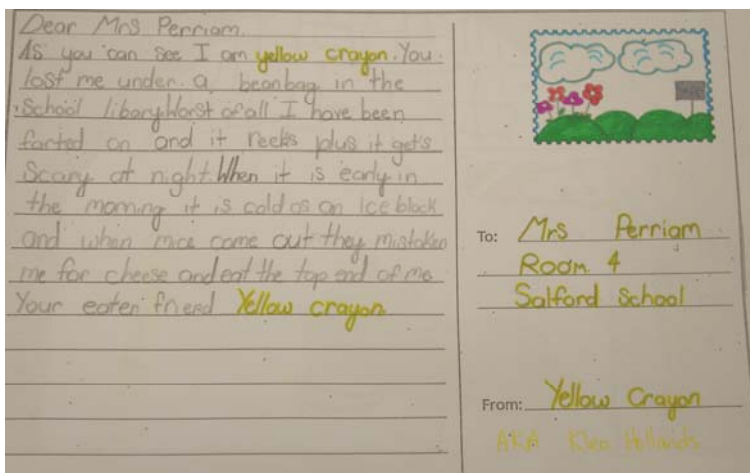 Dear Mrs Perriam.
As you can see I am yellow crayon. You
lost me under a beanbag in the
School libary. Worst of all I have been
farted on and it reeks plus it gets
Scary at night. When it is early in
the morning it is cold as an ice block
and when mice come out they mistaken
me for cheese and eat the top end of me
Your eaten friend Yellow crayon
To: Mrs Perriam
Room 4
Salford School
From: Yellow Crayon
AKA Klea Hollands